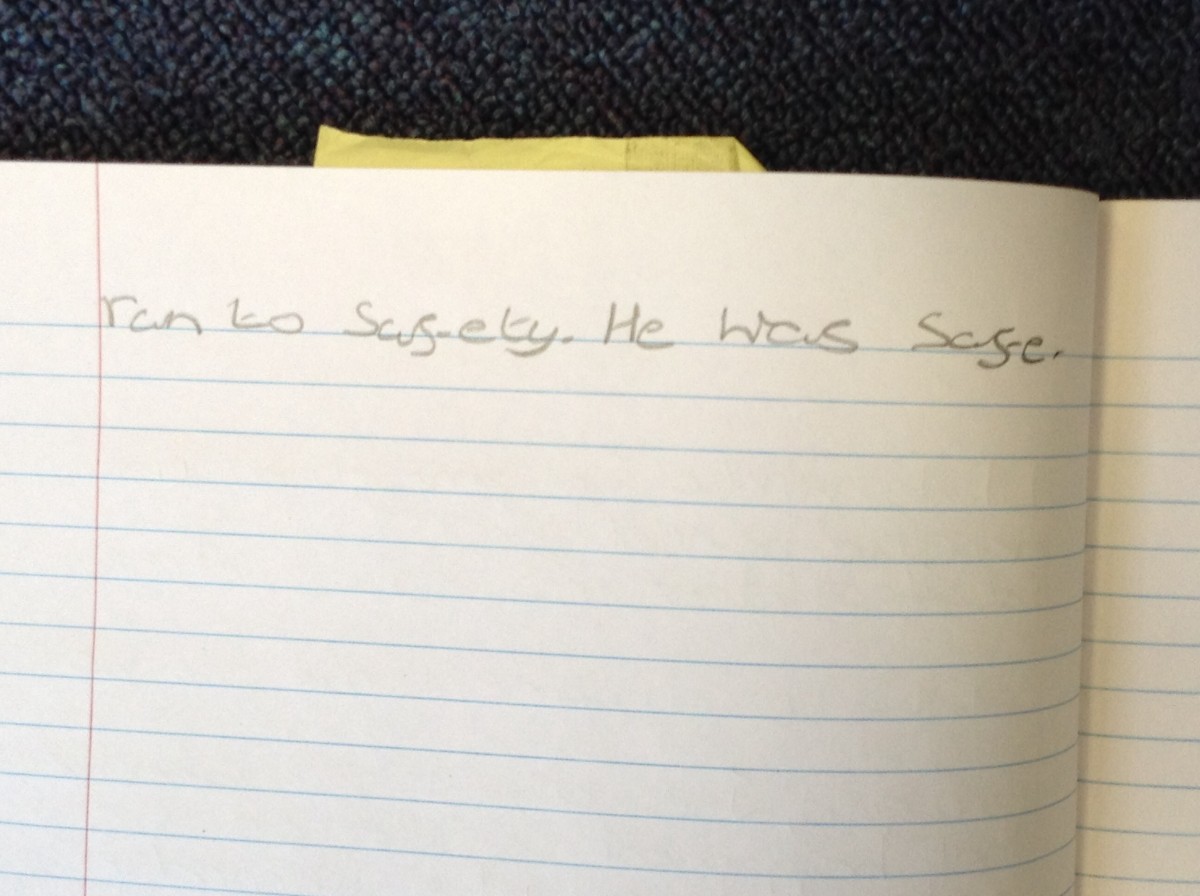 ran to Safety. He was Safe.